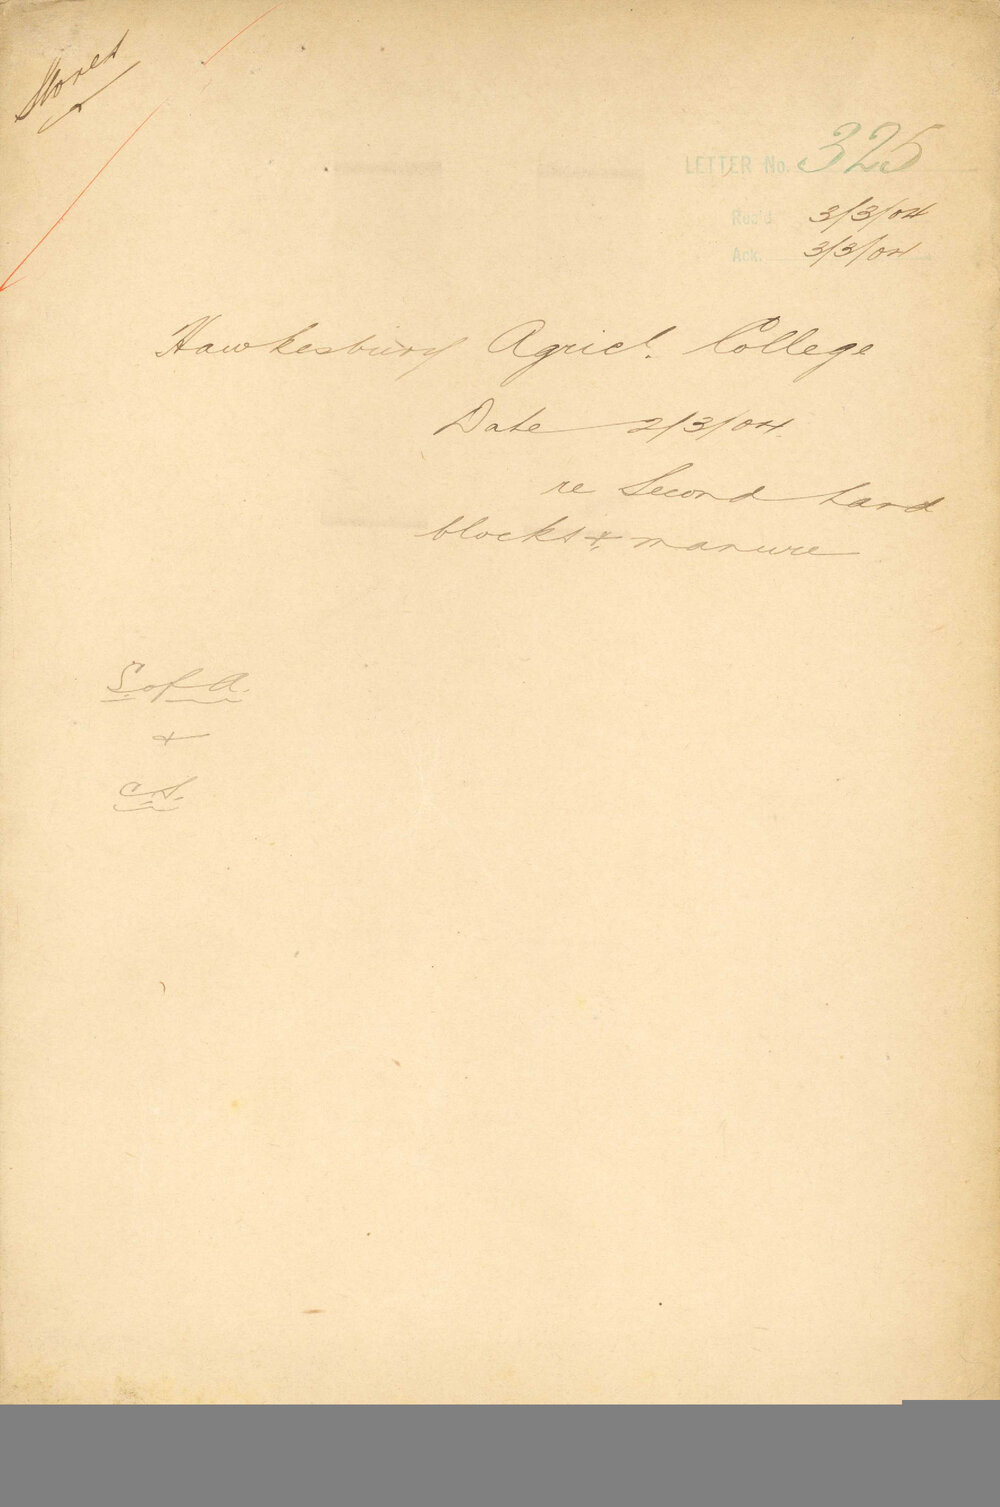 Stores
LETTER No. 325
Rec'd 3/3/04
Ack. 3/3/04
Hawkesbury Agricl. College
Date 2/3/04.
re Second hand
blocks & manure
S. of A.
&
C.S.